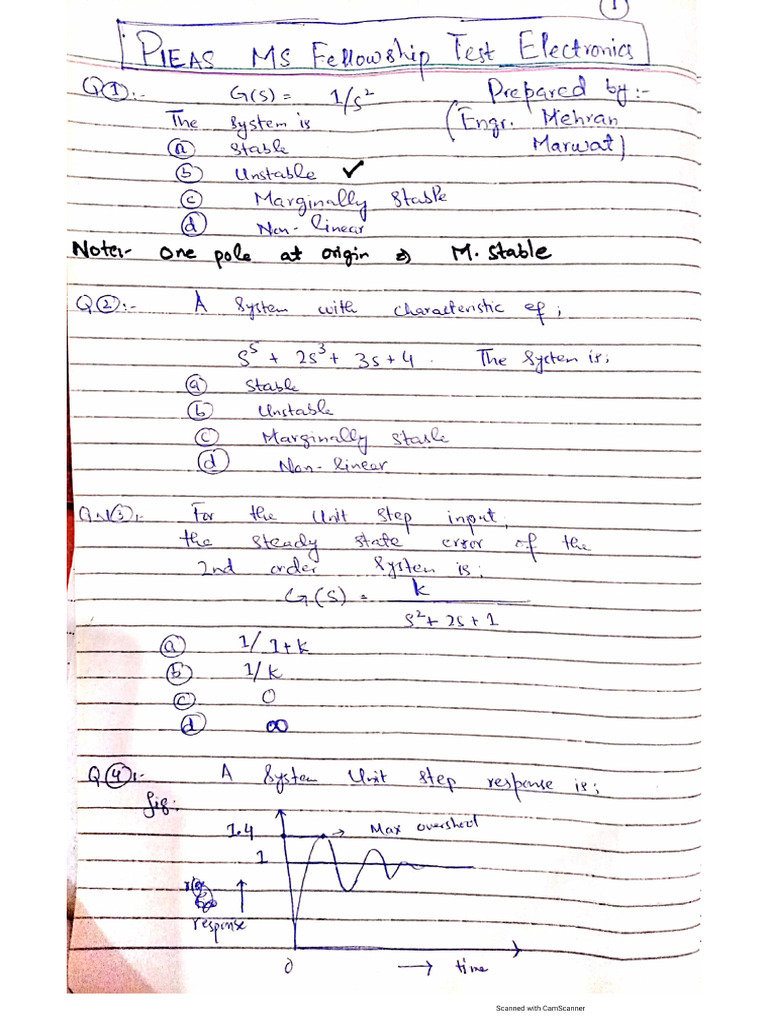 1
PIEAS MS Fellowship Test Electronics
Q1:- G(S) = 1/s² Prepared by:-
The System is (Engr. Mehran
a Stable Marwat)
b Unstable ✓
c Marginally Stable
d Non-linear
Note:- One pole at origin M. Stable
Q2:- A System with characteristic eq;
S⁵ + 2S³ + 3s + 4. The System is;
a Stable
b Unstable
c Marginally Stable
d Non-linear
3:- For the Unit Step input,
the steady state error of the
2nd order System is;
G(S) = k
s² + 2s + 1
a 1/1+k
b 1/k
c 0
d ∞
Q4:- A System Unit Step response is;
fig:
1.4 → Max overshoot
1
response
0 → time
Scanned with CamScanner